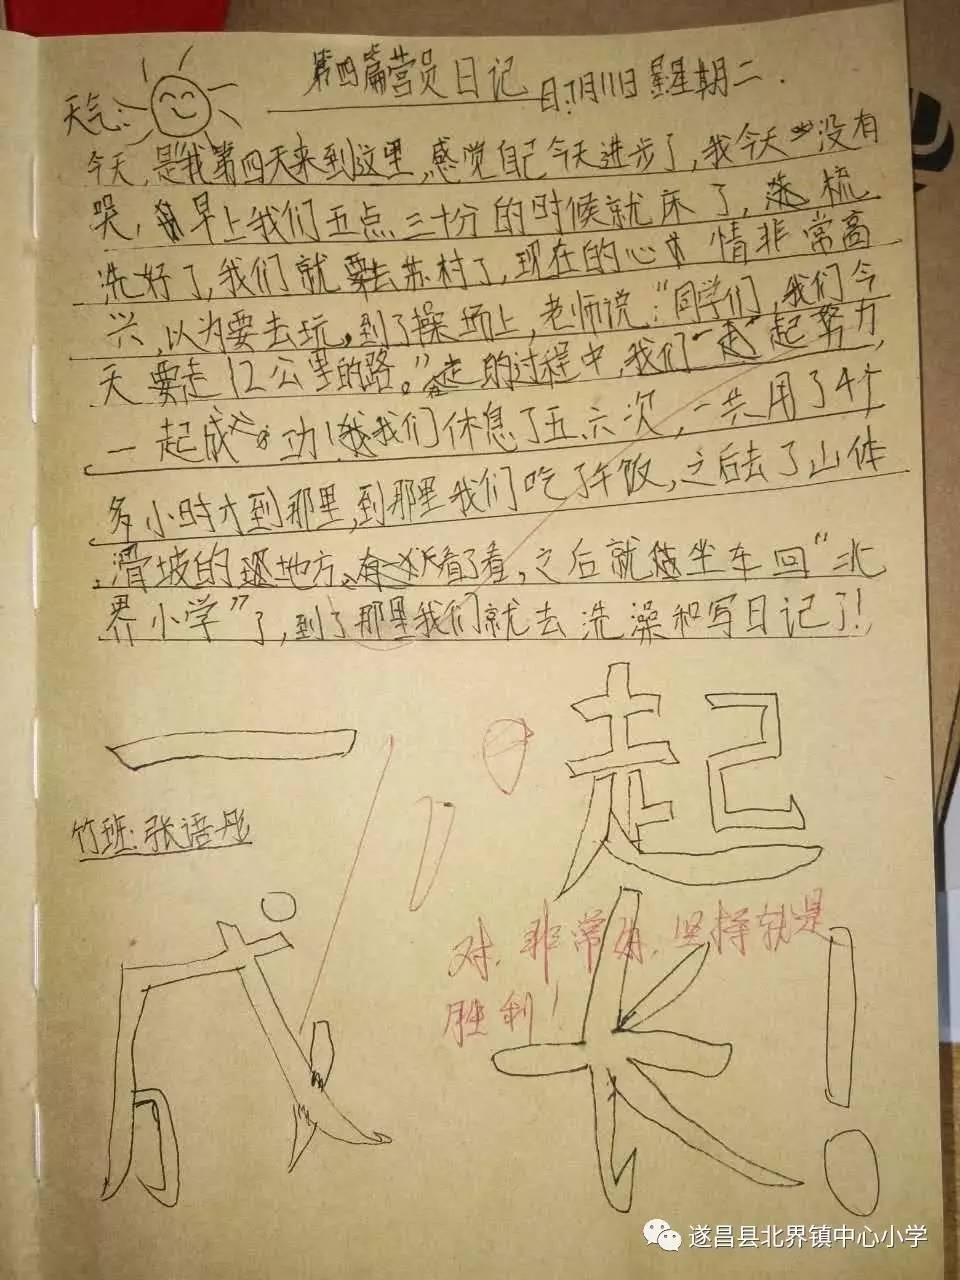 第四篇营员日记
天气：
日:7月11日 星期二.
今天,是我第四天来到这里,感觉自己今天进步了,我今天没有
哭,早上我们五点三十分的时候就床了,梳
洗好了,我们就要去苏村了,现在的心情非常高
兴,以为要去玩。到了操场上,老师说:“同学们,我们今
天要走12公里的路。”在走的过程中,我们一起努力,
一起成功!我们休息了五六次,一共用了4个
多小时才到那里,到那里我们吃了午饭,之后去了山体
滑坡的地方、看了看,之后就坐车回“北
界小学”了,到了那里我们就去洗澡和写日记了!
一起
竹班:张语彤
成长!
对,非常好,坚持就是
胜利!
遂昌县北界镇中心小学